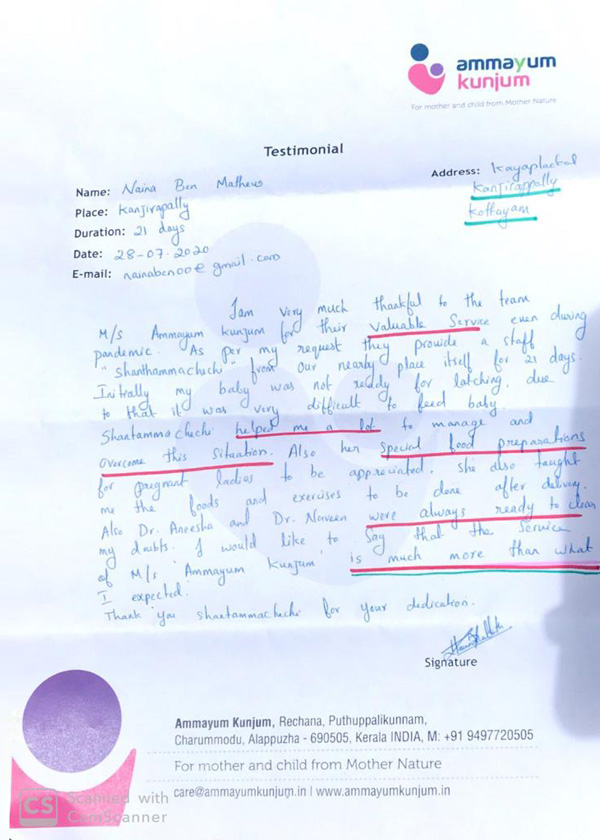 ammayum
kunjum
For mother and child from Mother Nature
Testimonial
Name: Naina Ben Mathews
Address: Kayaplackal
Kanjirappally
Kottayam
Place: Kanjirapally
Duration: 21 days
Date: 28-07-2020
E-mail: nainaben00@gmail.com
I am very much thankful to the team
M/s Ammayum kunjum for their valuable Service even during
pandemic. As per my request they provide a staff
"Shanthammachechi" from our nearly place itself for 21 days.
Initially my baby was not ready for latching, due
to that it was very difficult to feed baby.
Shantamma chechi helped me a lot to manage and
overcome this situation. Also her special food preparations
for pregnant ladies to be appreciated. She also taught
me the foods and exercises to be done after delivery.
Also Dr. Aneesha and Dr. Naveen were always ready to clear
my doubts. I would like to say that the service
of M/s 'Ammayum kunjum' is much more than what
I expected.
Thank you shantammachechi for your dedication.
Signature
Ammayum Kunjum, Rechana, Puthuppalikunnam,
Charummodu, Alappuzha - 690505, Kerala INDIA, M: +91 9497720505
For mother and child from Mother Nature
care@ammayumkunjum.in | www.ammayumkunjum.in
CS Scanned with
CamScanner